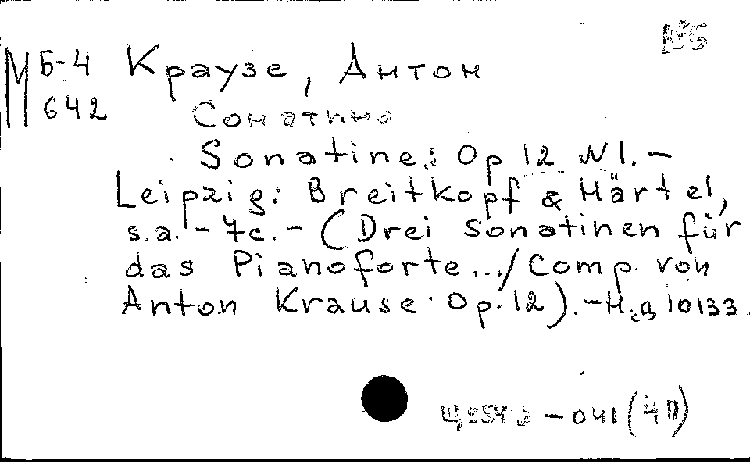 М Б-4 Краузе, Антон
642 Сонатина
Sonatine: Op 12 N 1. –
Leipzig: Breitkopf & Härtel,
s.a. – 7с. – (Drei Sonatinen für
das Pianoforte.../Comp. von
Anton Krause. Op. 12). – Н.д 10133.
– 041 (4П)